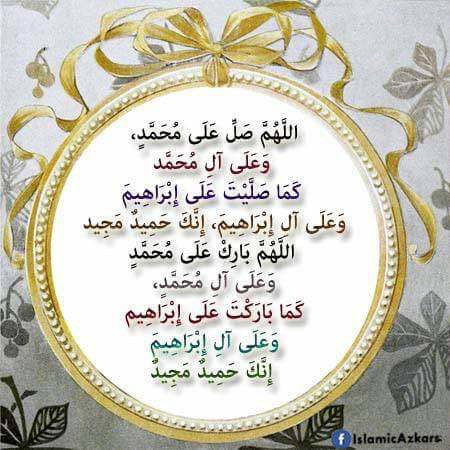 اللَّهُمَّ صَلِّ عَلَى مُحَمَّدٍ،
وَعَلَى آلِ مُحَمَّد
كَمَا صَلَّيْتَ عَلَى إِبْرَاهِيمَ
وَعَلَى آلِ إِبْرَاهِيمَ، إِنَّكَ حَمِيدٌ مَجِيد
اللَّهُمَّ بَارِكْ عَلَى مُحَمَّدٍ
وَعَلَى آلِ مُحَمَّدٍ،
كَمَا بَارَكْتَ عَلَى إِبْرَاهِيم
وَعَلَى آلِ إِبْرَاهِيمَ
إِنَّكَ حَمِيدٌ مَجِيدٌ
f IslamicAzkars